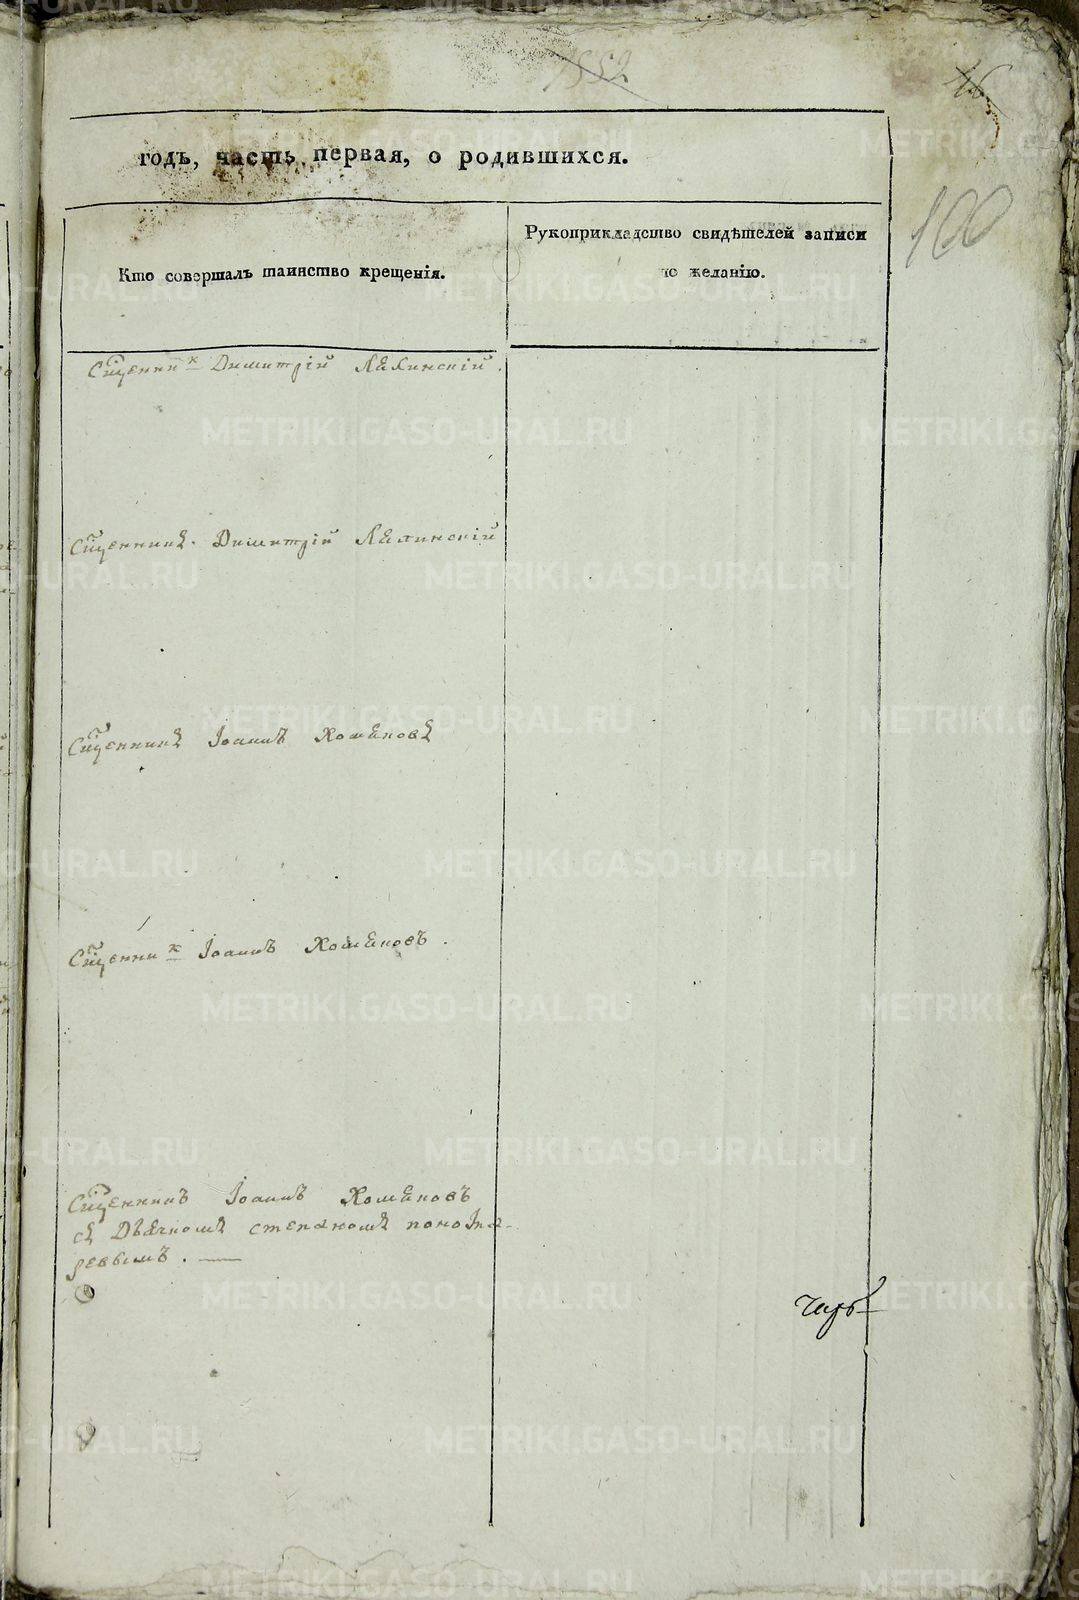 1552
16
100
годъ, часть первая, о родившихся.
Кто совершалъ таинство крещенія.
Рукоприкладство свидѣтелей записи
по желанію.
Сщенник Димитрій
Сщенникъ Димитрій
Сщенникъ Іоаннъ Хомяковъ
Сщенник Іоаннъ Хомяковъ.
Сщенникъ Іоаннъ Хомяковъ
съ Дьячкомъ степаномъ понома-
ревымъ.
METRIKI.GASO-URAL.RU